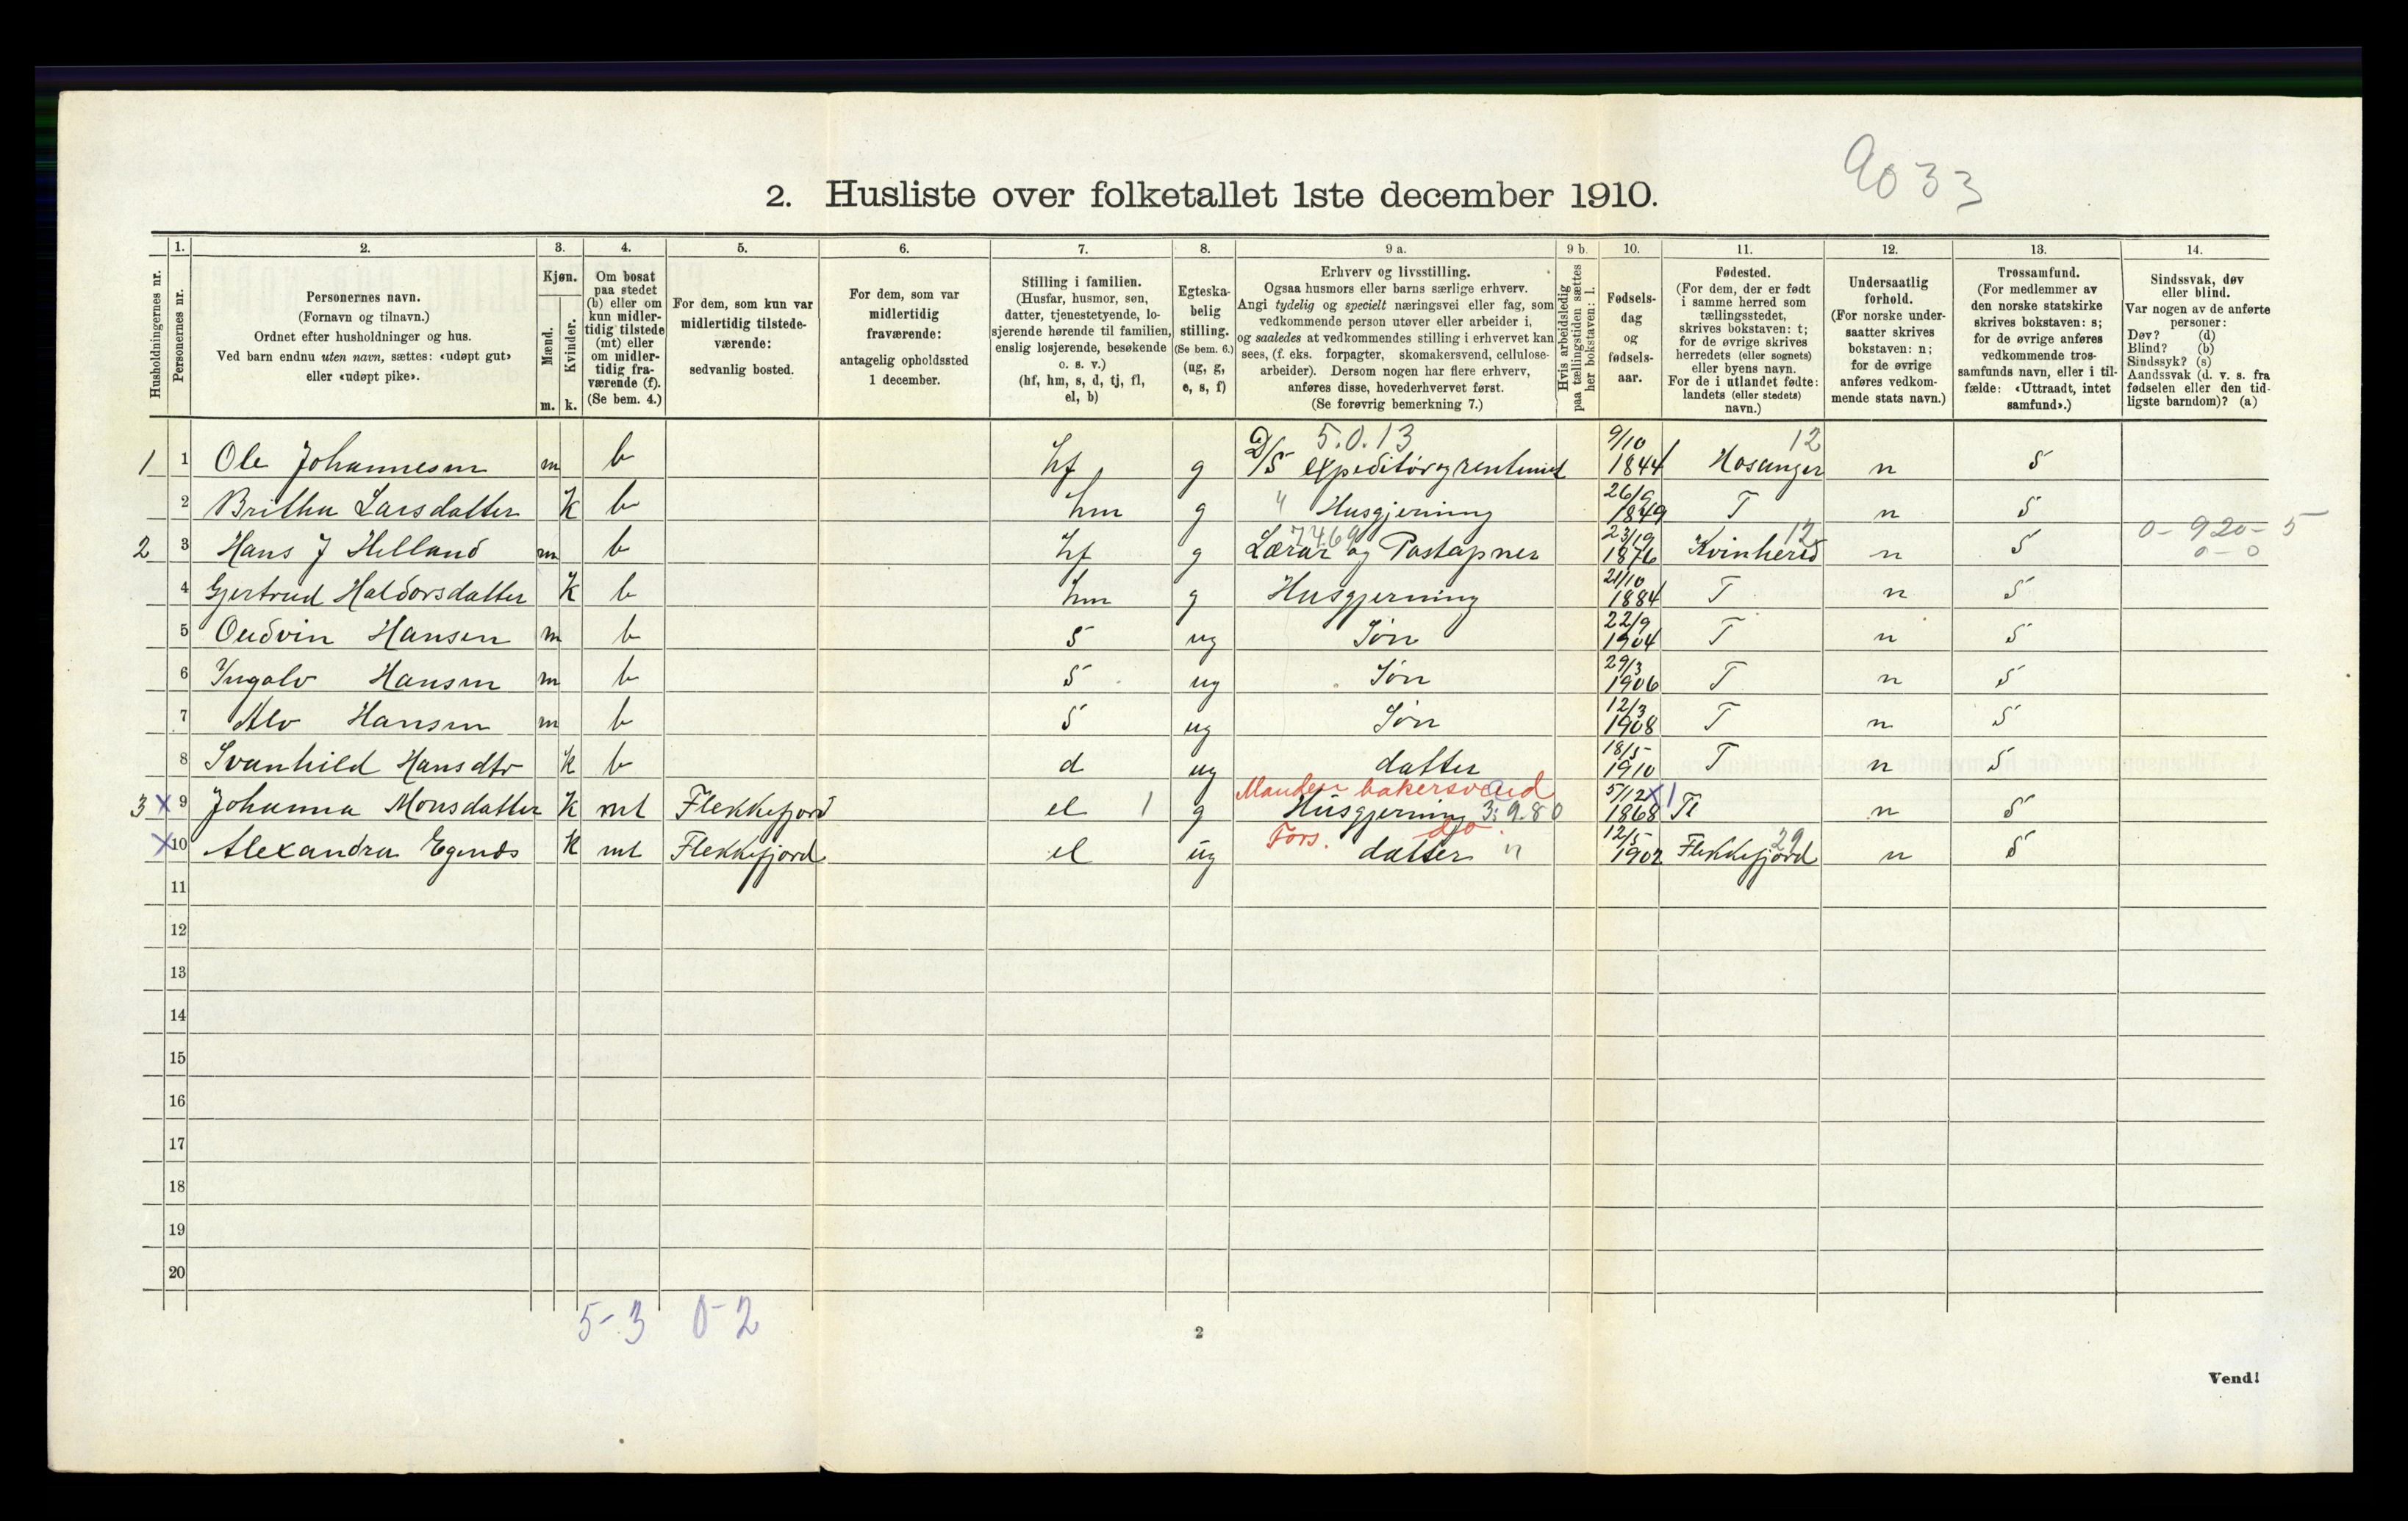 9033
2. Husliste over folketallet 1ste december 1910.
Husholdningernes nr.
1. Personernes nr.
2. Personernes navn.
(Fornavn og tilnavn.)
Ordnet efter husholdninger og hus.
Ved barn endnu uten navn, sættes: «udøpt gut»
eller «udøpt pike».
3. Kjøn.
Mænd. m.
Kvinder. k.
4. Om bosat
paa stedet
(b) eller om
kun midler-
tidig tilstede
(mt) eller
om midler-
tidig fra-
værende (f).
(Se bem. 4.)
5. For dem, som kun var
midlertidig tilstede-
værende:
sedvanlig bosted.
6. For dem, som var
midlertidig
fraværende:
antagelig opholdssted
1 december.
7. Stilling i familien.
(Husfar, husmor, søn,
datter, tjenestetyende, lo-
sjerende hørende til familien,
enslig losjerende, besøkende
o. s. v.)
(hf, hm, s, d, tj, fl,
el, b)
8. Egteska-
belig
stilling.
(Se bem. 6.)
(ug, g,
e, s, f)
9 a. Erhverv og livsstilling.
Ogsaa husmors eller barns særlige erhverv.
Angi tydelig og specielt næringsvei eller fag, som
vedkommende person utøver eller arbeider i,
og saaledes at vedkommendes stilling i erhvervet kan
sees, (f. eks. forpagter, skomakersvend, cellulose-
arbeider). Dersom nogen har flere erhverv,
anføres disse, hovederhvervet først.
(Se forøvrig bemerkning 7.)
9 b. Hvis arbeidsledig
paa tællingstiden sættes
her bokstaven: l.
10. Fødsels-
dag
og
fødsels-
aar.
11. Fødested.
(For dem, der er født
i samme herred som
tællingsstedet,
skrives bokstaven: t;
for de øvrige skrives
herredets (eller sognets)
eller byens navn.
For de i utlandet fødte:
landets (eller stedets)
navn.)
12. Undersaatlig
forhold.
(For norske under-
saatter skrives
bokstaven: n;
for de øvrige
anføres vedkom-
mende stats navn.)
13. Trossamfund.
(For medlemmer av
den norske statskirke
skrives bokstaven: s;
for de øvrige anføres
vedkommende tros-
samfunds navn, eller i til-
fælde: «Uttraadt, intet
samfund».)
14. Sindssvak, døv
eller blind.
Var nogen av de anførte
personer:
Døv? (d)
Blind? (b)
Sindssyk? (s)
Aandssvak (d. v. s. fra
fødselen eller den tid-
ligste barndom)? (a)
5.0.13 9/10 12
1 1 Ole Johannesen m b hf g D/S expeditør og rentenist 1844 Hosanger n S
26/9
2 Britha Larsdatter k b hm g " Husgjerning 1849 T n S
7469 12 0-920-5
2 3 Hans J Helland m b hf g Lærar og Postapner 1876 Kvinherid n S 0-0
21/10
4 Gjertrud Haldorsdatter k b hm g Husgjerning 1884 T n S
22/9
5 Oudvin Hansen m b S ug Søn 1904 T n S
29/3
6 Yngolv Hansen m b S ug Søn 1906 T n S
12/3
7 Alv Hansen m b S ug Søn 1908 T n S
18/5
8 Svanhild Hansdtr k b d ug datter 1910 T n S
Manden bakersvend 5/12 x1
3 x 9 Johanna Monsdatter k mt Flekkefjord el 1 g Husgjerning 3:9.80 1868 T n S
Fors. do. 12/5 29
x 10 Alexandra Egends k mt Flekkefjord el ug datter n 1902 Flekkefjord n S
11
12
13
14
15
16
17
18
19
20
5-3 0-2
2
Vend!